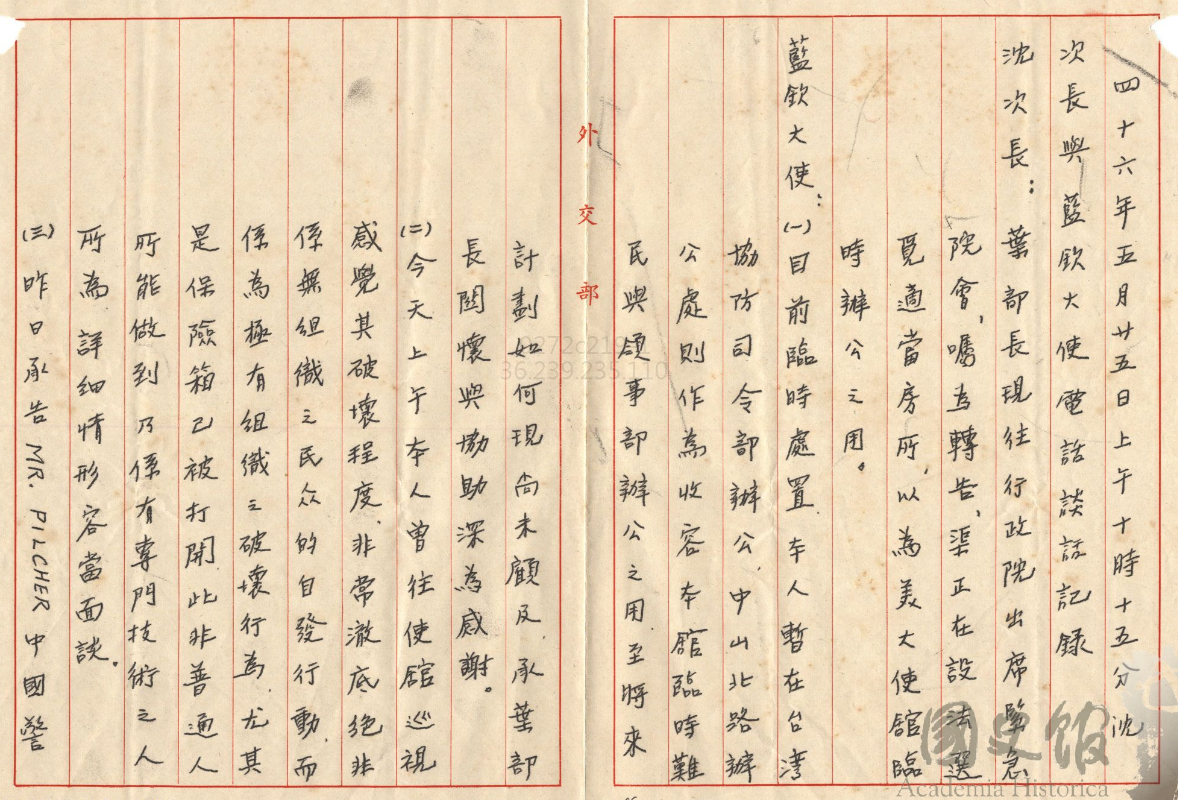 四十六年五月廿五日上午十時十五分沈
次長與藍欽大使電話談話記錄
沈次長：葉部長現往行政院出席緊急
院會，囑為轉告、渠正在設法選
覓適當房所，以為美大使館臨
時辦公之用。
藍欽大使：㈠目前臨時處置，本人暫在台灣
協防司令部辦公，中山北路辦
公處則作為收容本館臨時難
民與領事部辦公之用至將來
外交部
計劃如何現尚未顧及，承葉部
長關懷與協助深為感謝。
㈡今天上午本人曾往使館巡視
感覺其破壞程度，非常澈底絕非
係無組織之民众的自發行動，而
係為極有組織之破壞行為，尤其
是保險箱已被打開，此非普通人
所能做到乃係有專門技術之人
所為詳細情形容當面談。
㈢昨日承告MR. PILCHER中國警
國史館
Academia Historica
36.239.235.110